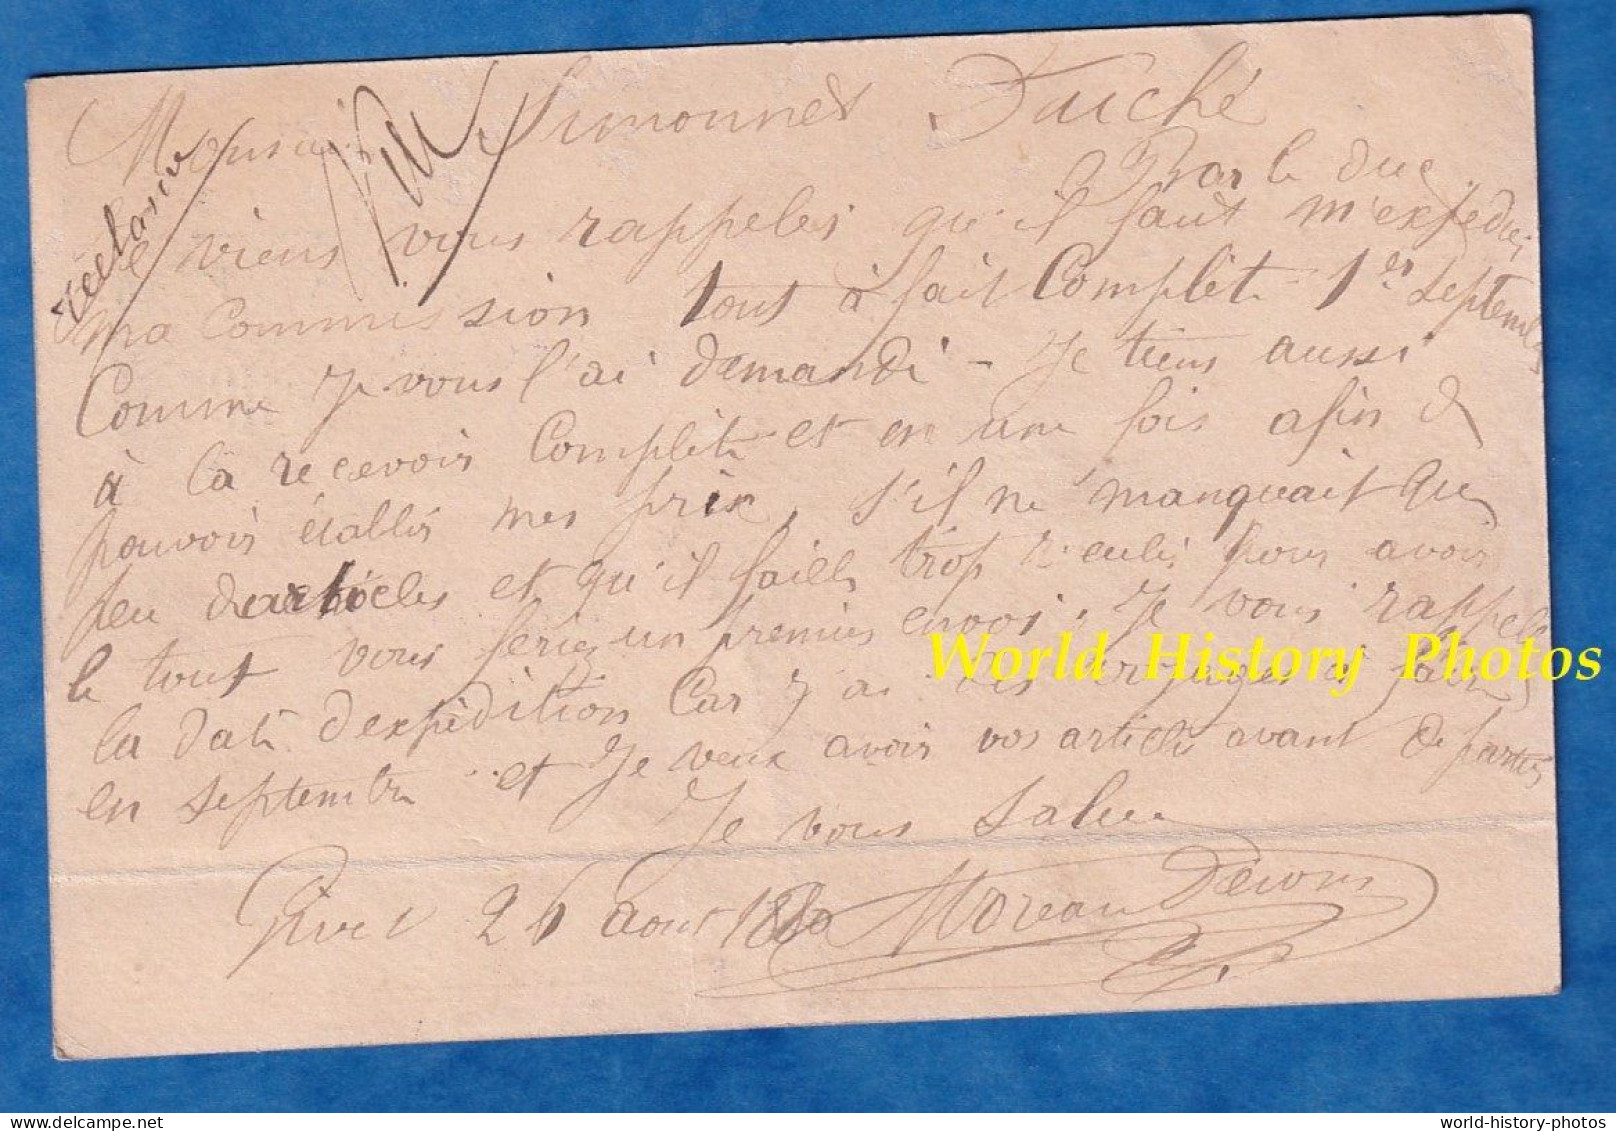 Monsieur Simonnet Duiché
Bar le duc
Je viens vous rappeler qu'il faut m'expédier
ma commission tout à fait Complète 1er septembre
Comme Je vous l'ai demandé - Je tiens aussi
à la recevoir Complète et en une fois afin de
pouvoir établir mes prix, s'il ne manquait que
peu d'articles et qu'il faille trop reculer pour avoir
le tout vous feriez un premier envoi. Je vous rappelle
la date d'expédition Car J'ai des voyages à faire
en septembre et Je veux avoir vos articles avant de partir
Je vous salue
Givet 26 aout 1880 Moreau Derons
World History Photos
world-history-photos